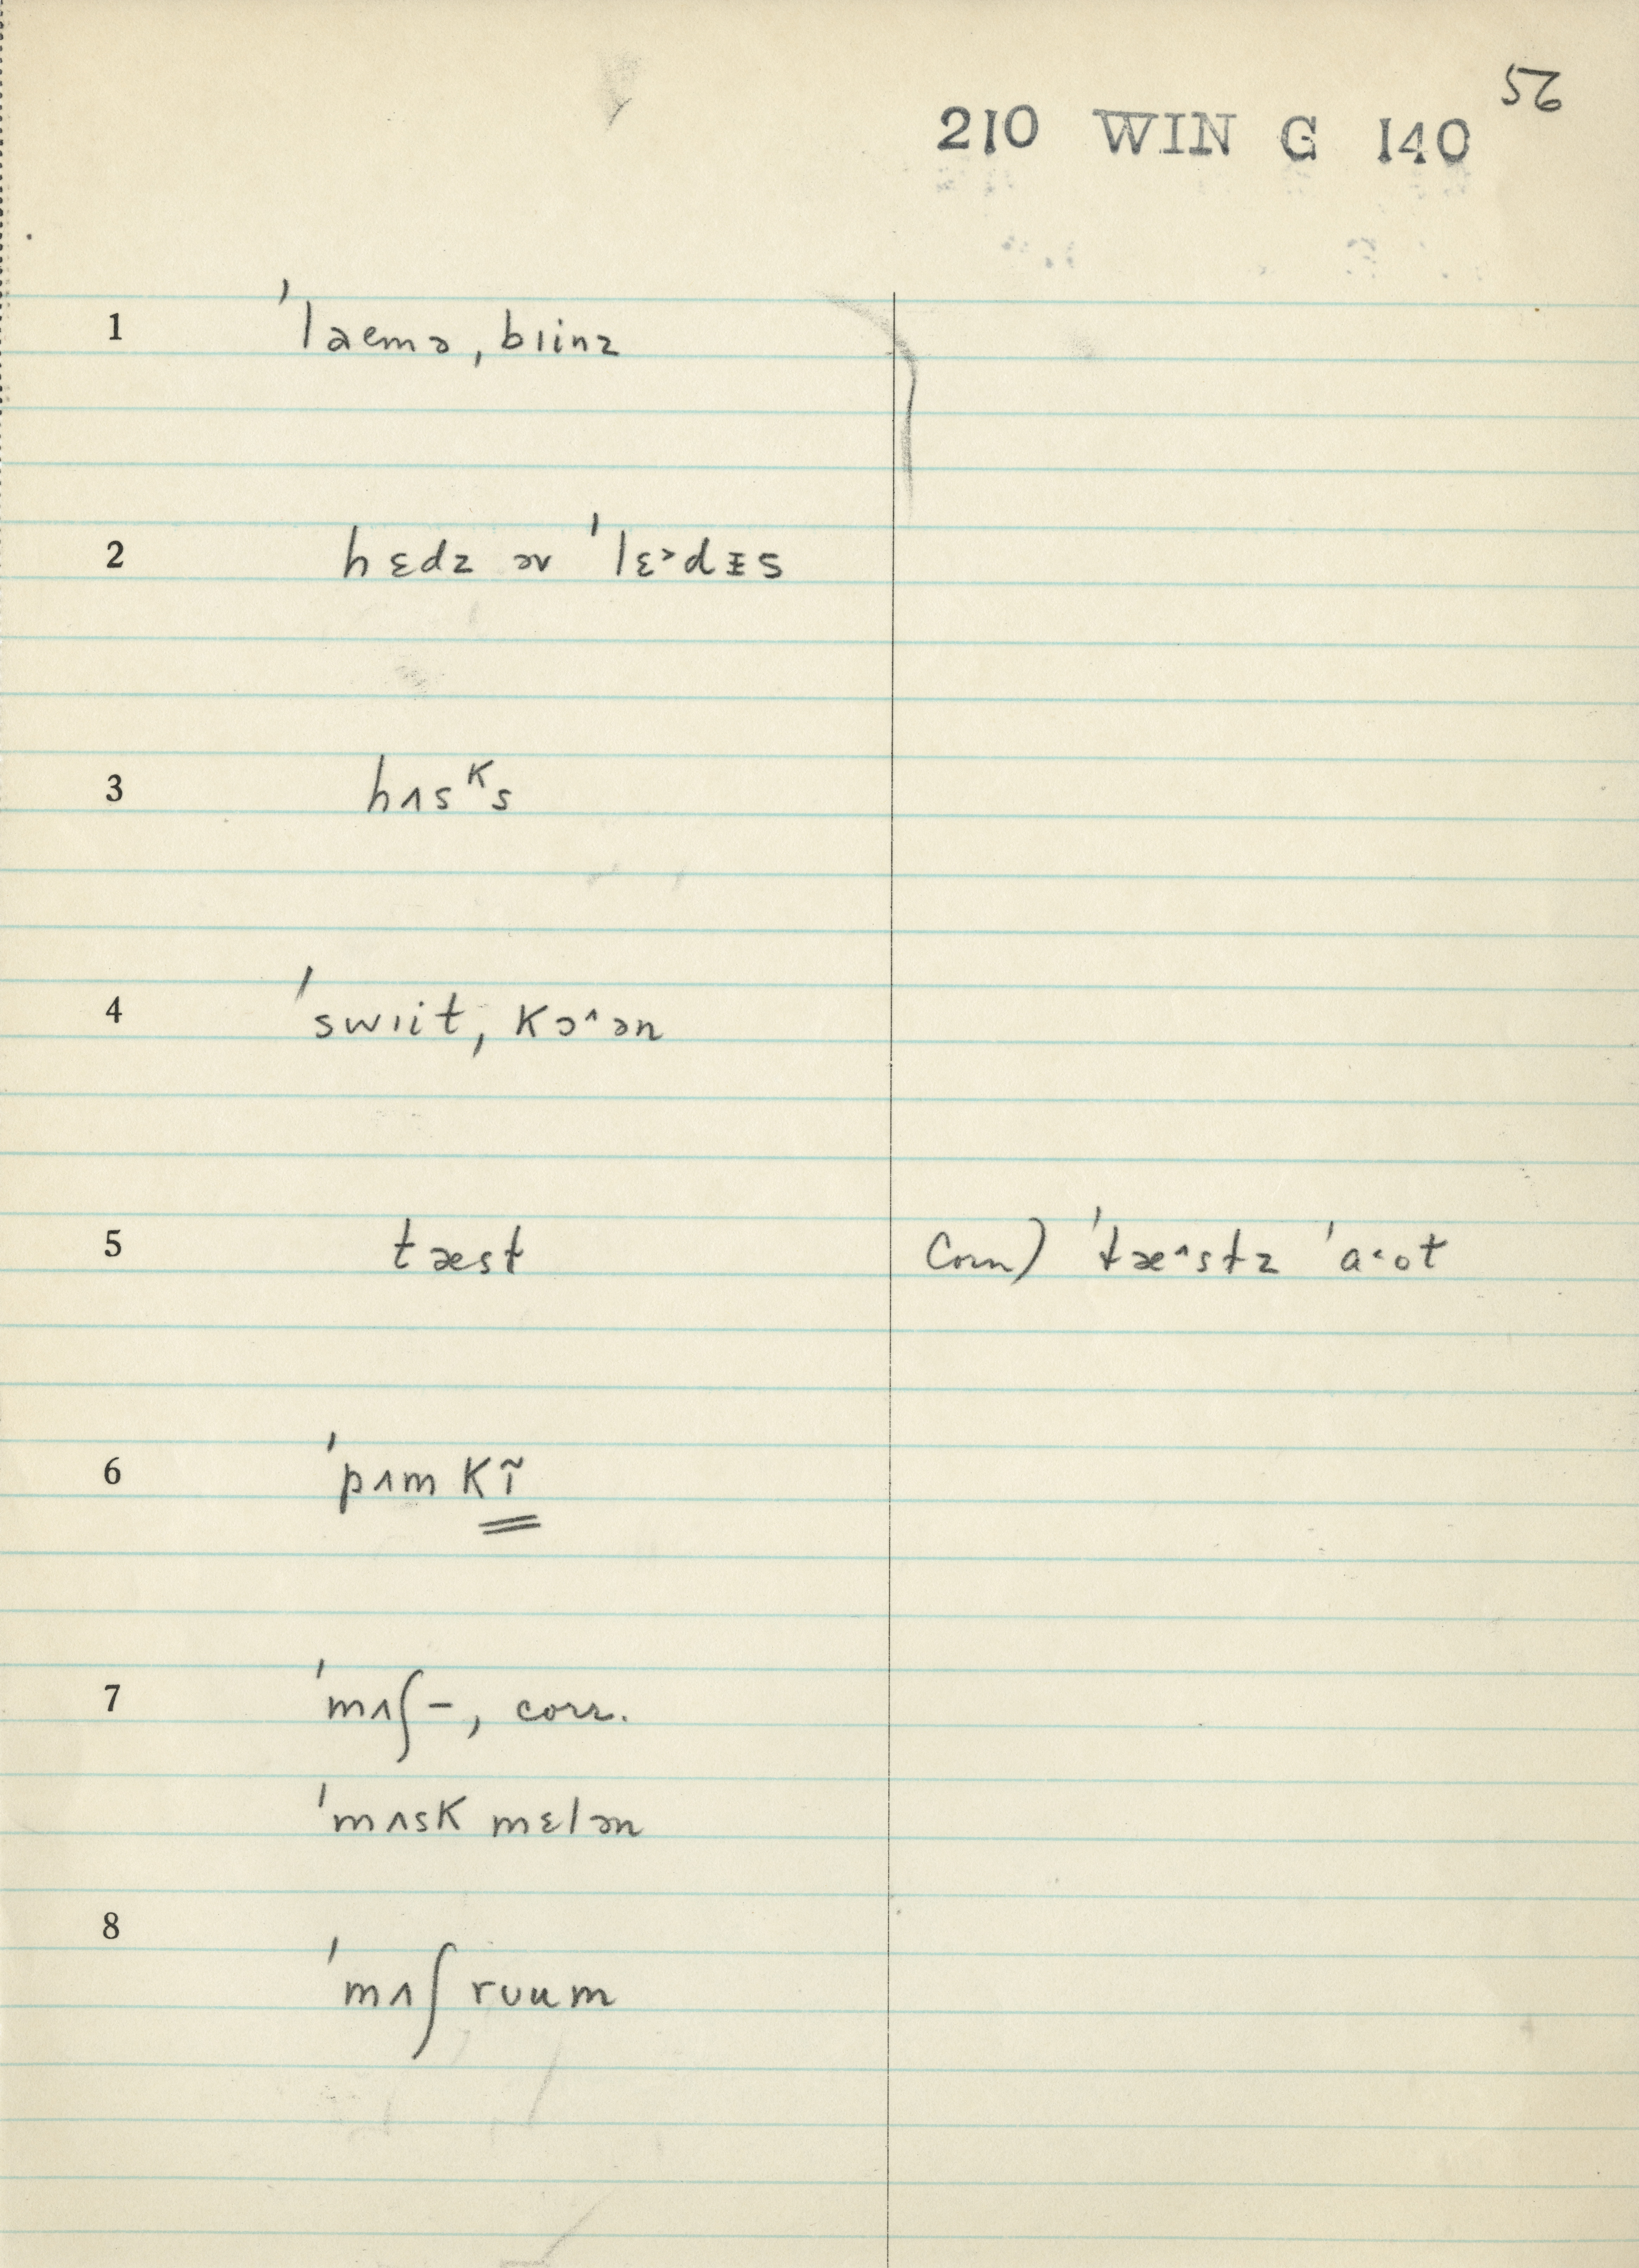 56
210 WIN G 140
1 ˈlaemə, bɪinz
2 hɛdz əv ˈlɛ˃dᵻs
3 hʌsᴷs
4 ˈswɪit, kɔ˄ən
5 tæst Corn) ˈtæ˄stz ˈa˂ot
6 ˈpʌmkĩ
7 ˈmʌʃ–, corr.
ˈmʌsk mɛlən
8 ˈmʌʃ rʊum